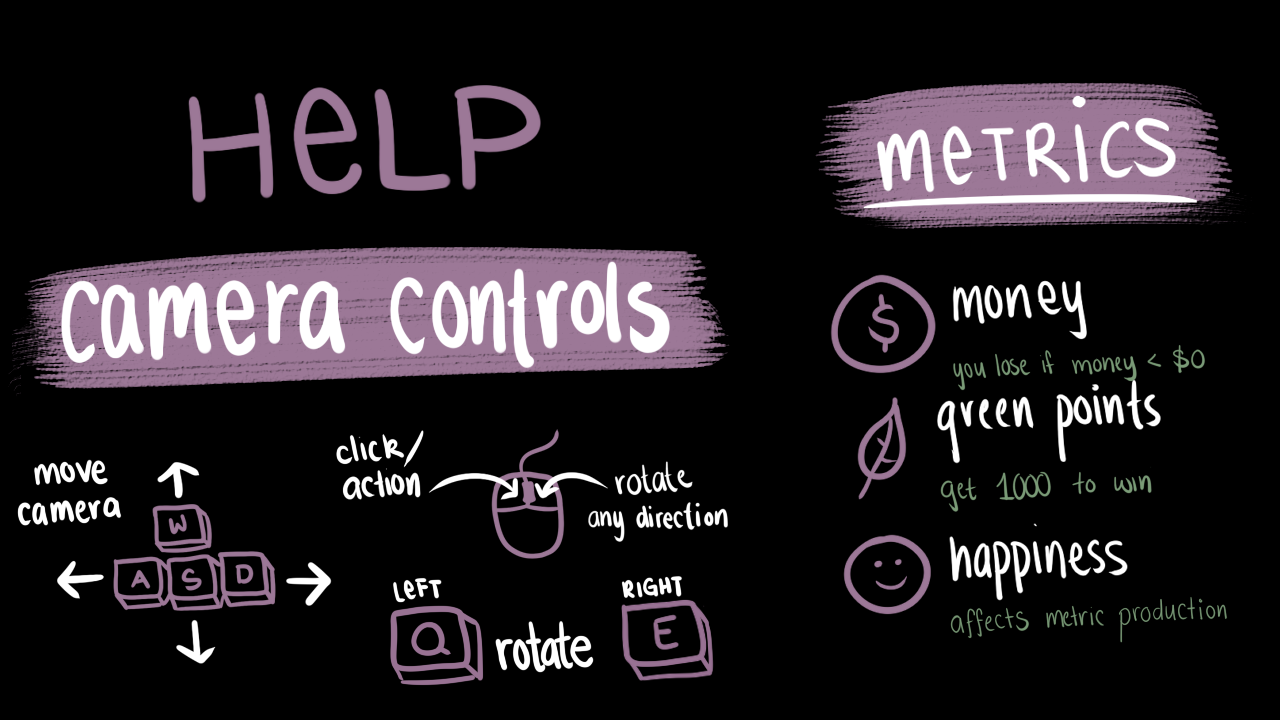 HeLP
camera controls
move
camera
W
A S D
click/
action
rotate
any direction
LeFT
Q
rotate
RIGHT
E
meTRiCS
$
money
you lose if money < $0
green points
get 1000 to win
happiness
affects metric production